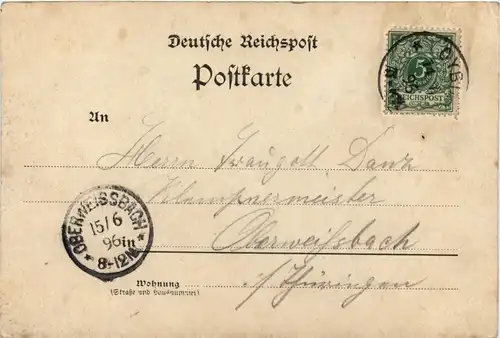 Deutsche Reichspost
Postkarte
OYBIN
5
REICHSPOST
An
Herrn Traugott Danz
Klempnermeister
Oberweißbach
i/Thüringen
OBERWEISSBACH
15/6
96
8-12
Wohnung
(Straße und Hausnummer)